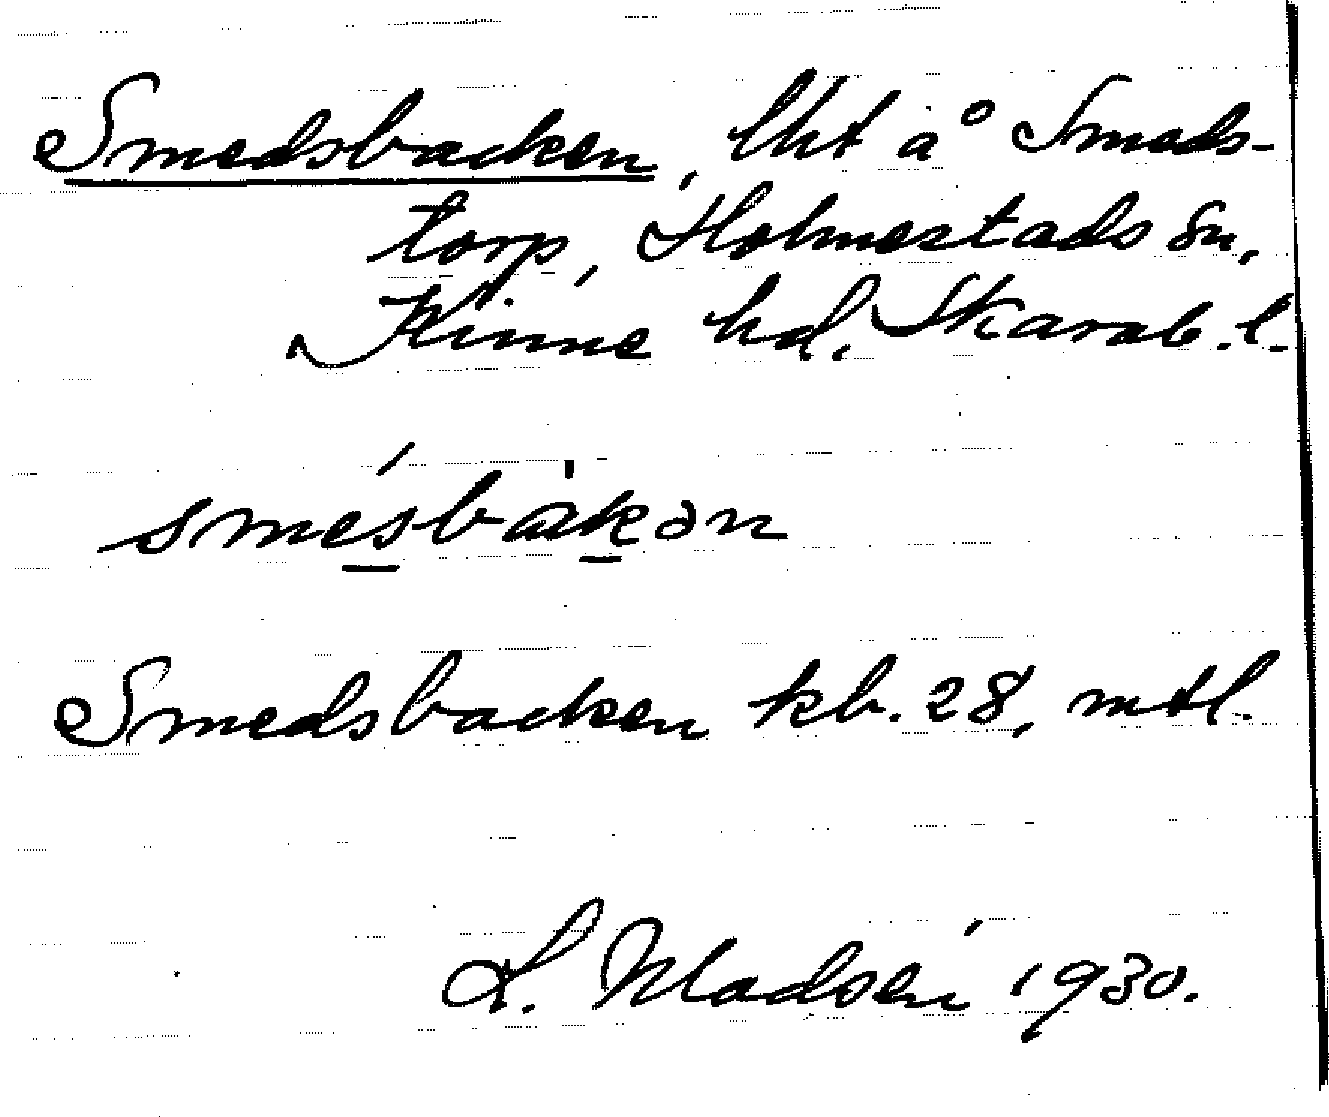 Smedsbacken, lht å Smeds-
torp, Holmestads sn,
Kinne hd. Skarab. l.
smesbakən
Smedsbacken kb. 28, mtl.
L. Madsén 1930.